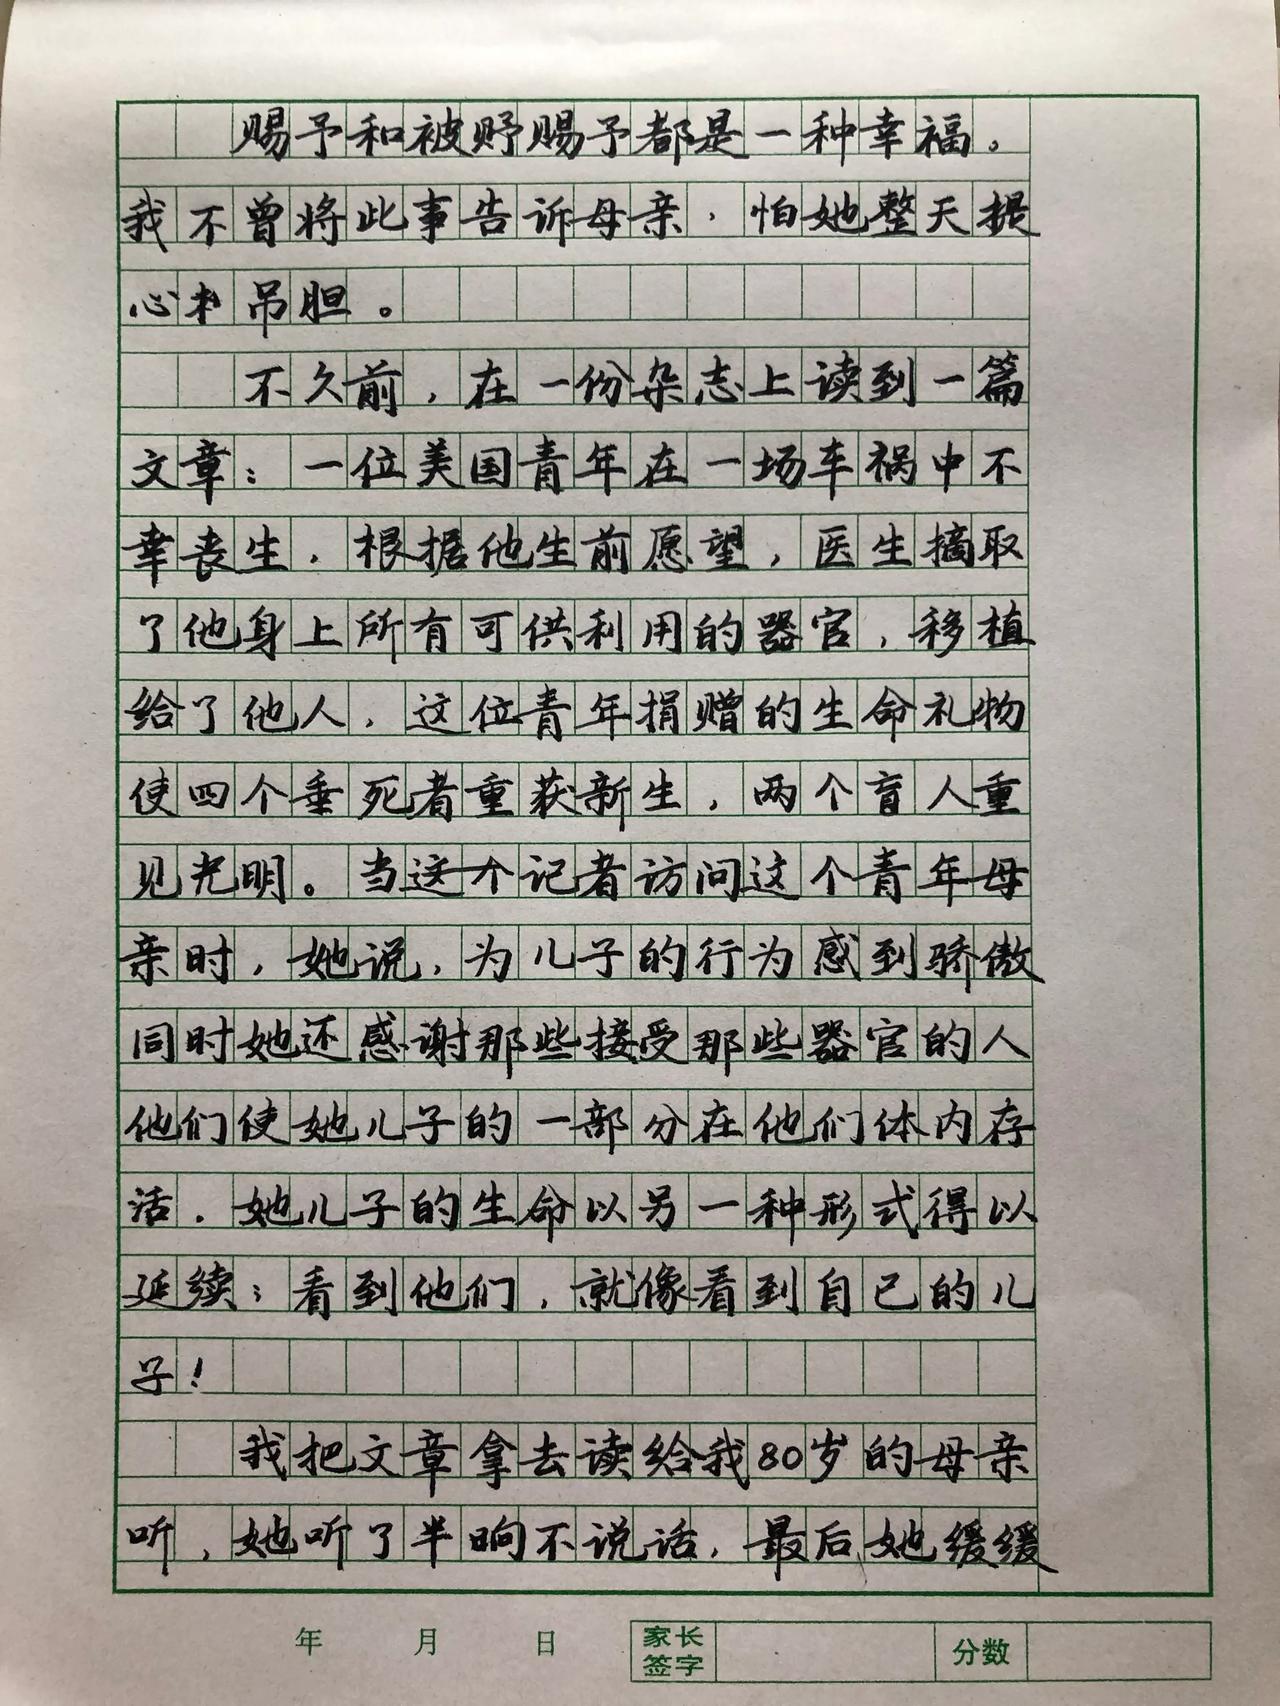 赐予和被赐予都是一种幸福。
我不曾将此事告诉母亲，怕她整天提
心吊胆。
不久前，在一份杂志上读到一篇
文章：一位美国青年在一场车祸中不
幸丧生，根据他生前愿望，医生摘取
了他身上所有可供利用的器官，移植
给了他人，这位青年捐赠的生命礼物
使四个垂死者重获新生，两个盲人重
见光明。当这个记者访问这个青年母
亲时，她说，为儿子的行为感到骄傲
同时她还感谢那些接受那些器官的人
他们使她儿子的一部分在他们体内存
活．她儿子的生命以另一种形式得以
延续；看到他们，就像看到自己的儿
子！
我把文章拿去读给我80岁的母亲
听，她听了半晌不说话，最后她缓缓
年 月 日 家长签字 分数